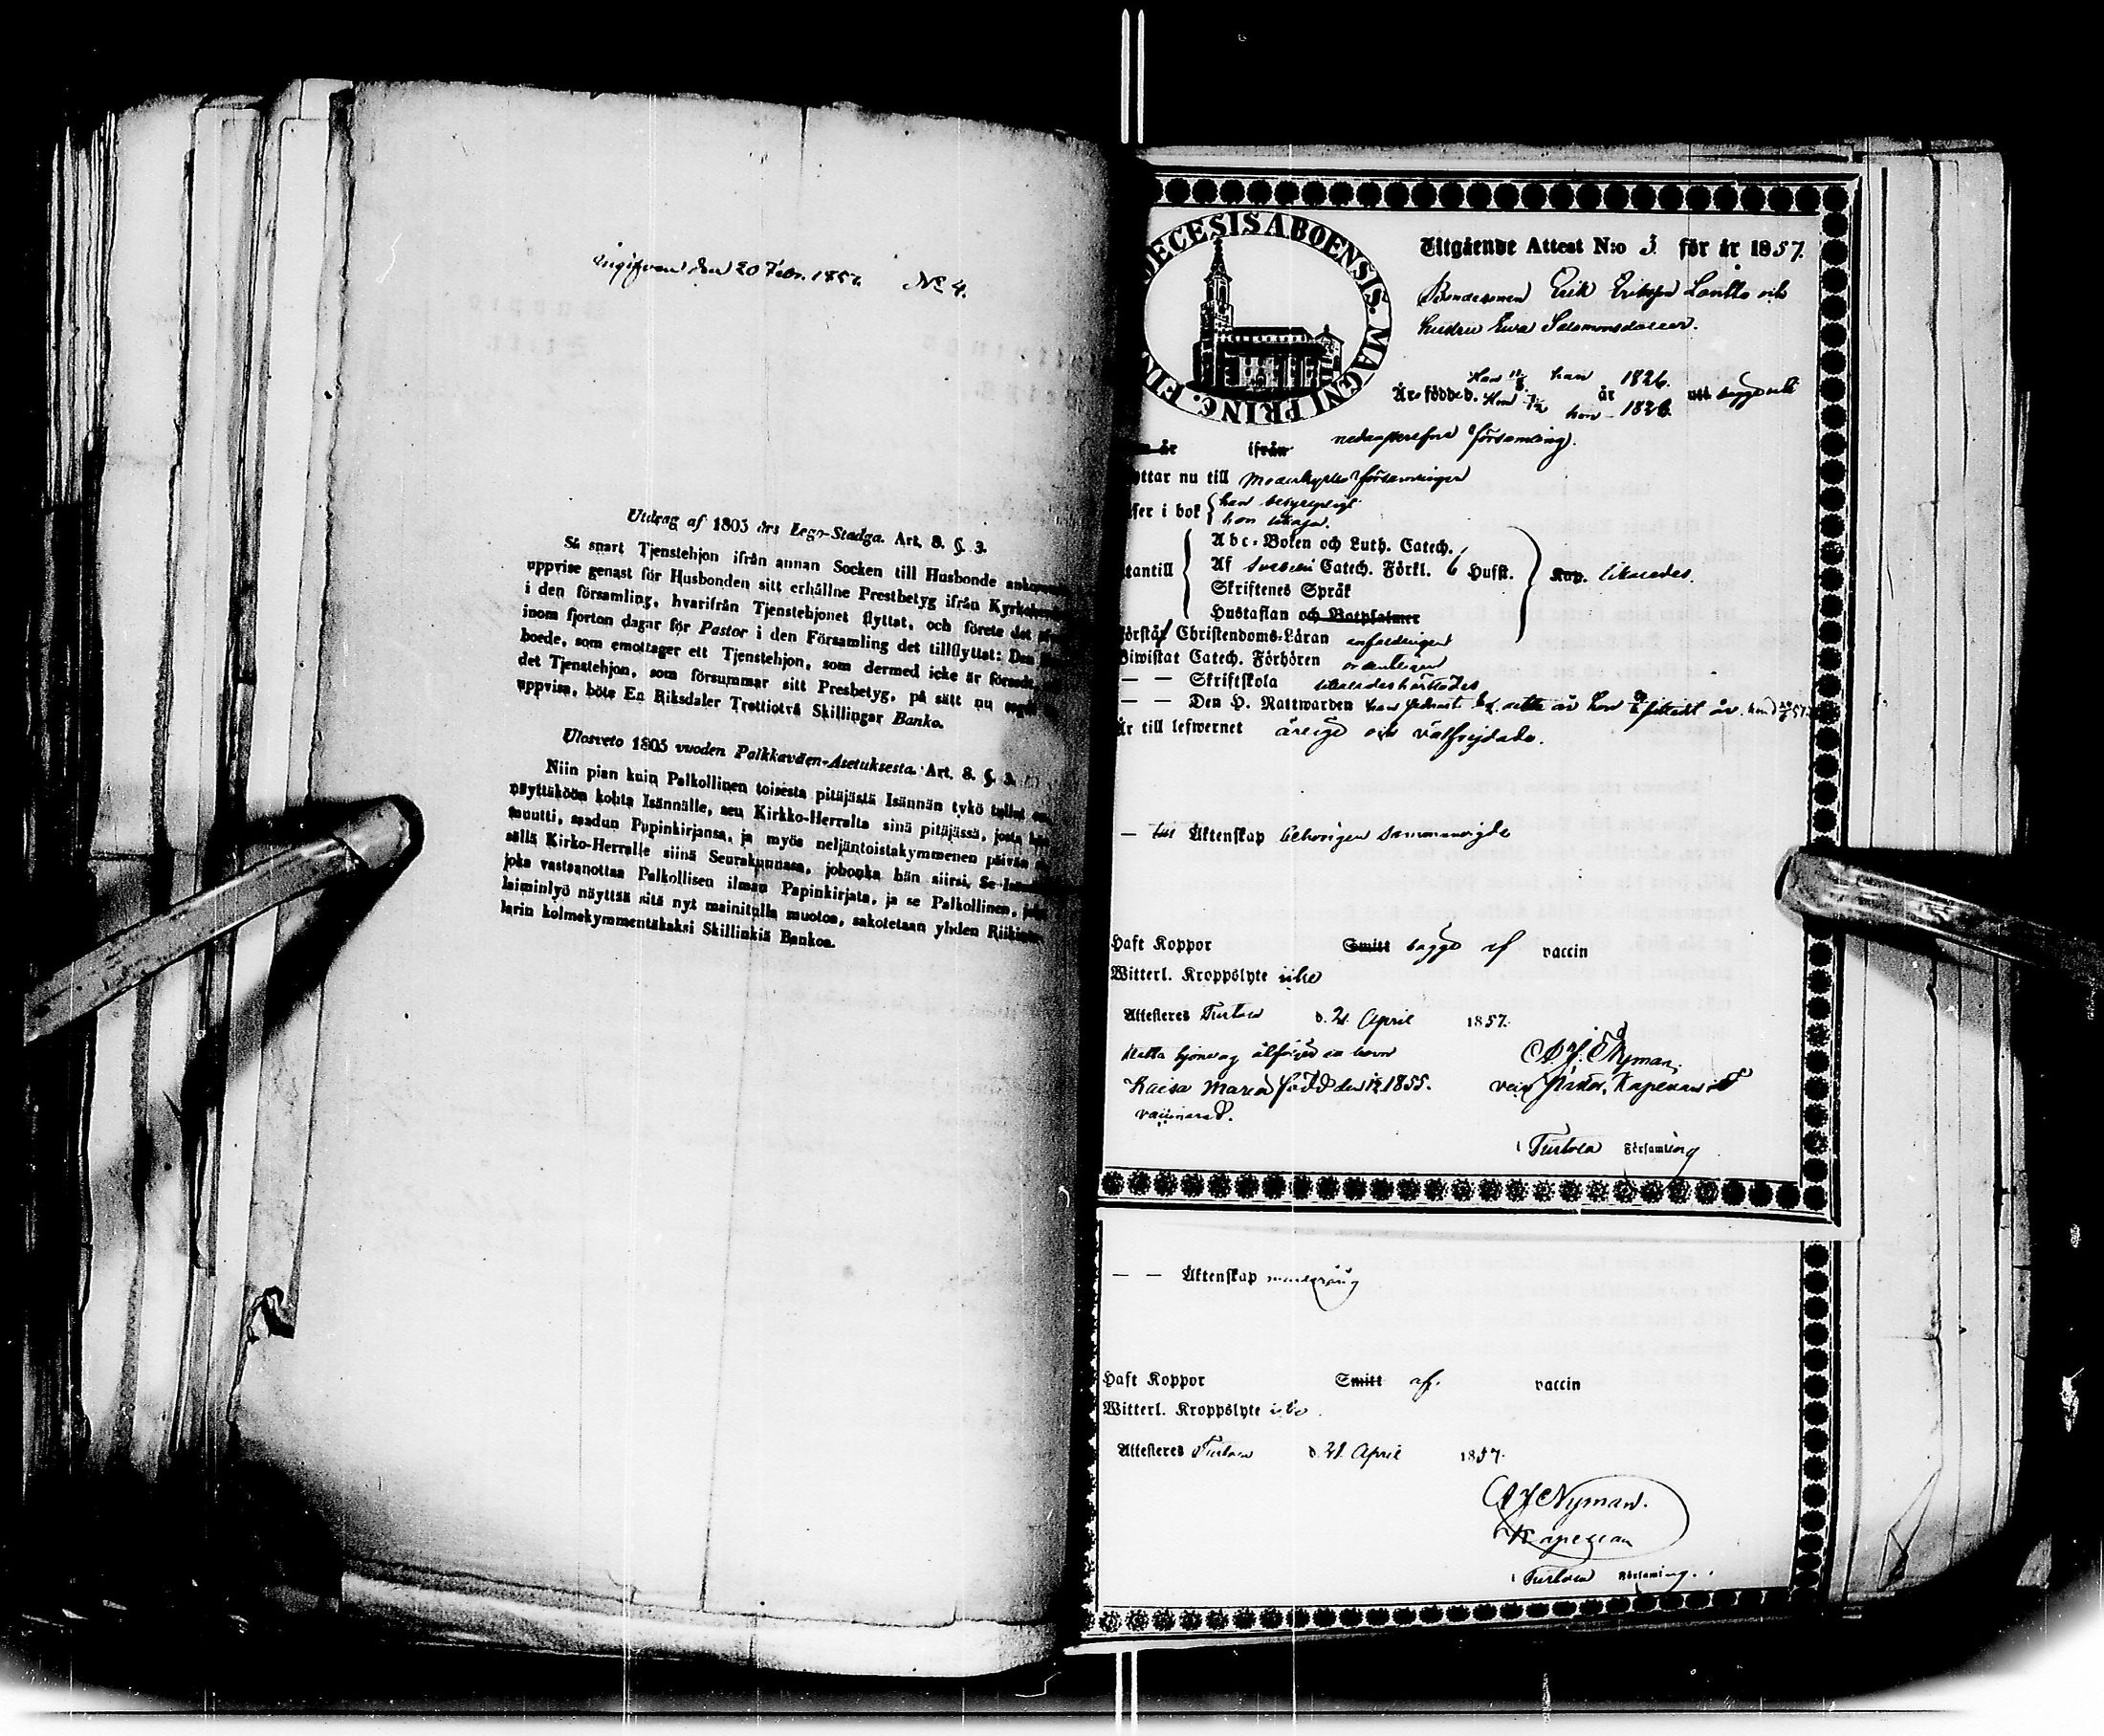 den 20 Febr. 1857. No 4.
Utdrag af 1805 års Lego-Stadga. Art. 8. §. 3.
Så snart Tjenstehjon ifrån annan Socken till Husbonde
uppvise genast för Husbonden sitt erhållne Prestbetyg ifrån
i den församling, hvarifrån Tjenstehjonet flyttat, och förete det
inom fjorton dagar för Pastor i den Församling det tillflyttat: Den
boede, som emottager ett Tjenstehjon, som dermed icke är försedt,
det Tjenstehjon, som försummar sitt Presbetyg, på sätt nu
uppvisa, böte En Riksdaler Trettiotvå Skillingar Banko.
Ulosveto 1805 vuoden Palkkaväen-Asetuksesta. Art. 8. §. 3.
Niin pian kuin Palkollinen toisesta pitäjästä Isännän tykö tullut on,
näyttäköön kohta Isännälle, sen Kirkko-Herralta sinä pitäjässä, josta hän
muutti, saadun Papinkirjansa, ja myös neljäntoistakymmenen päivän
sällä Kirko-Herralle siinä Seurakunnassa, johonka hän siirsi. Se
joka vastaanottaa Palkollisen ilman Papinkirjata, ja se Palkollinen, joka
laiminlyö näyttää sitä nyt mainitulla muotoa, sakotetaan yhden
larin kolmekymmentäkaksi Skillinkiä Bankoa.
DECESIS ABOENSIS. MAGNI PRINC. FIN
Utgående Attest N:o 3 för år 1857.
Bondesonen Erik Eriksson Lantto och
hustru Ewa Salomonsdotter.
Äro födde d. Han 11/8 han år 1826.
Hon hon 1826
år ifrån församling.
ttar nu till Moderkyrko församlingen
fer i bok han begripligt
hon
Abc-Boken och Luth. Catech.
tantill Af Svebelii Catech. Förkl. 6 Hufst. Kap. likaledes.
Skriftenes Språk
Hustaflan och Botpsalmer
örstår Christendoms-Läran enfaldigen
Biwistat Catech. Förhören ordentligen
— — Skriftskola
— — Den H. Nattwarden
Är till lefwernet ärlige och välfrejdade.
— till Äktenskap behörigen sammanvigde
Haft Koppor Smitt bägge af vaccin
Witterl. Kroppslyte icke
Attesteres Turtola d. 21 April 1857.
Detta hjonelag åtföljes en barn
Kaisa Maria född den 1855.
vaccinerad.
A. J. Nyman
Pastor, Kapellan
i Turtola Församling
— — Äktenskap
Haft Koppor Smitt af. vaccin
Witterl. Kroppslyte icke
Attesteres Turtola d. 21 April 1857.
A J Nyman.
Kapellan
i Turtola Församling.